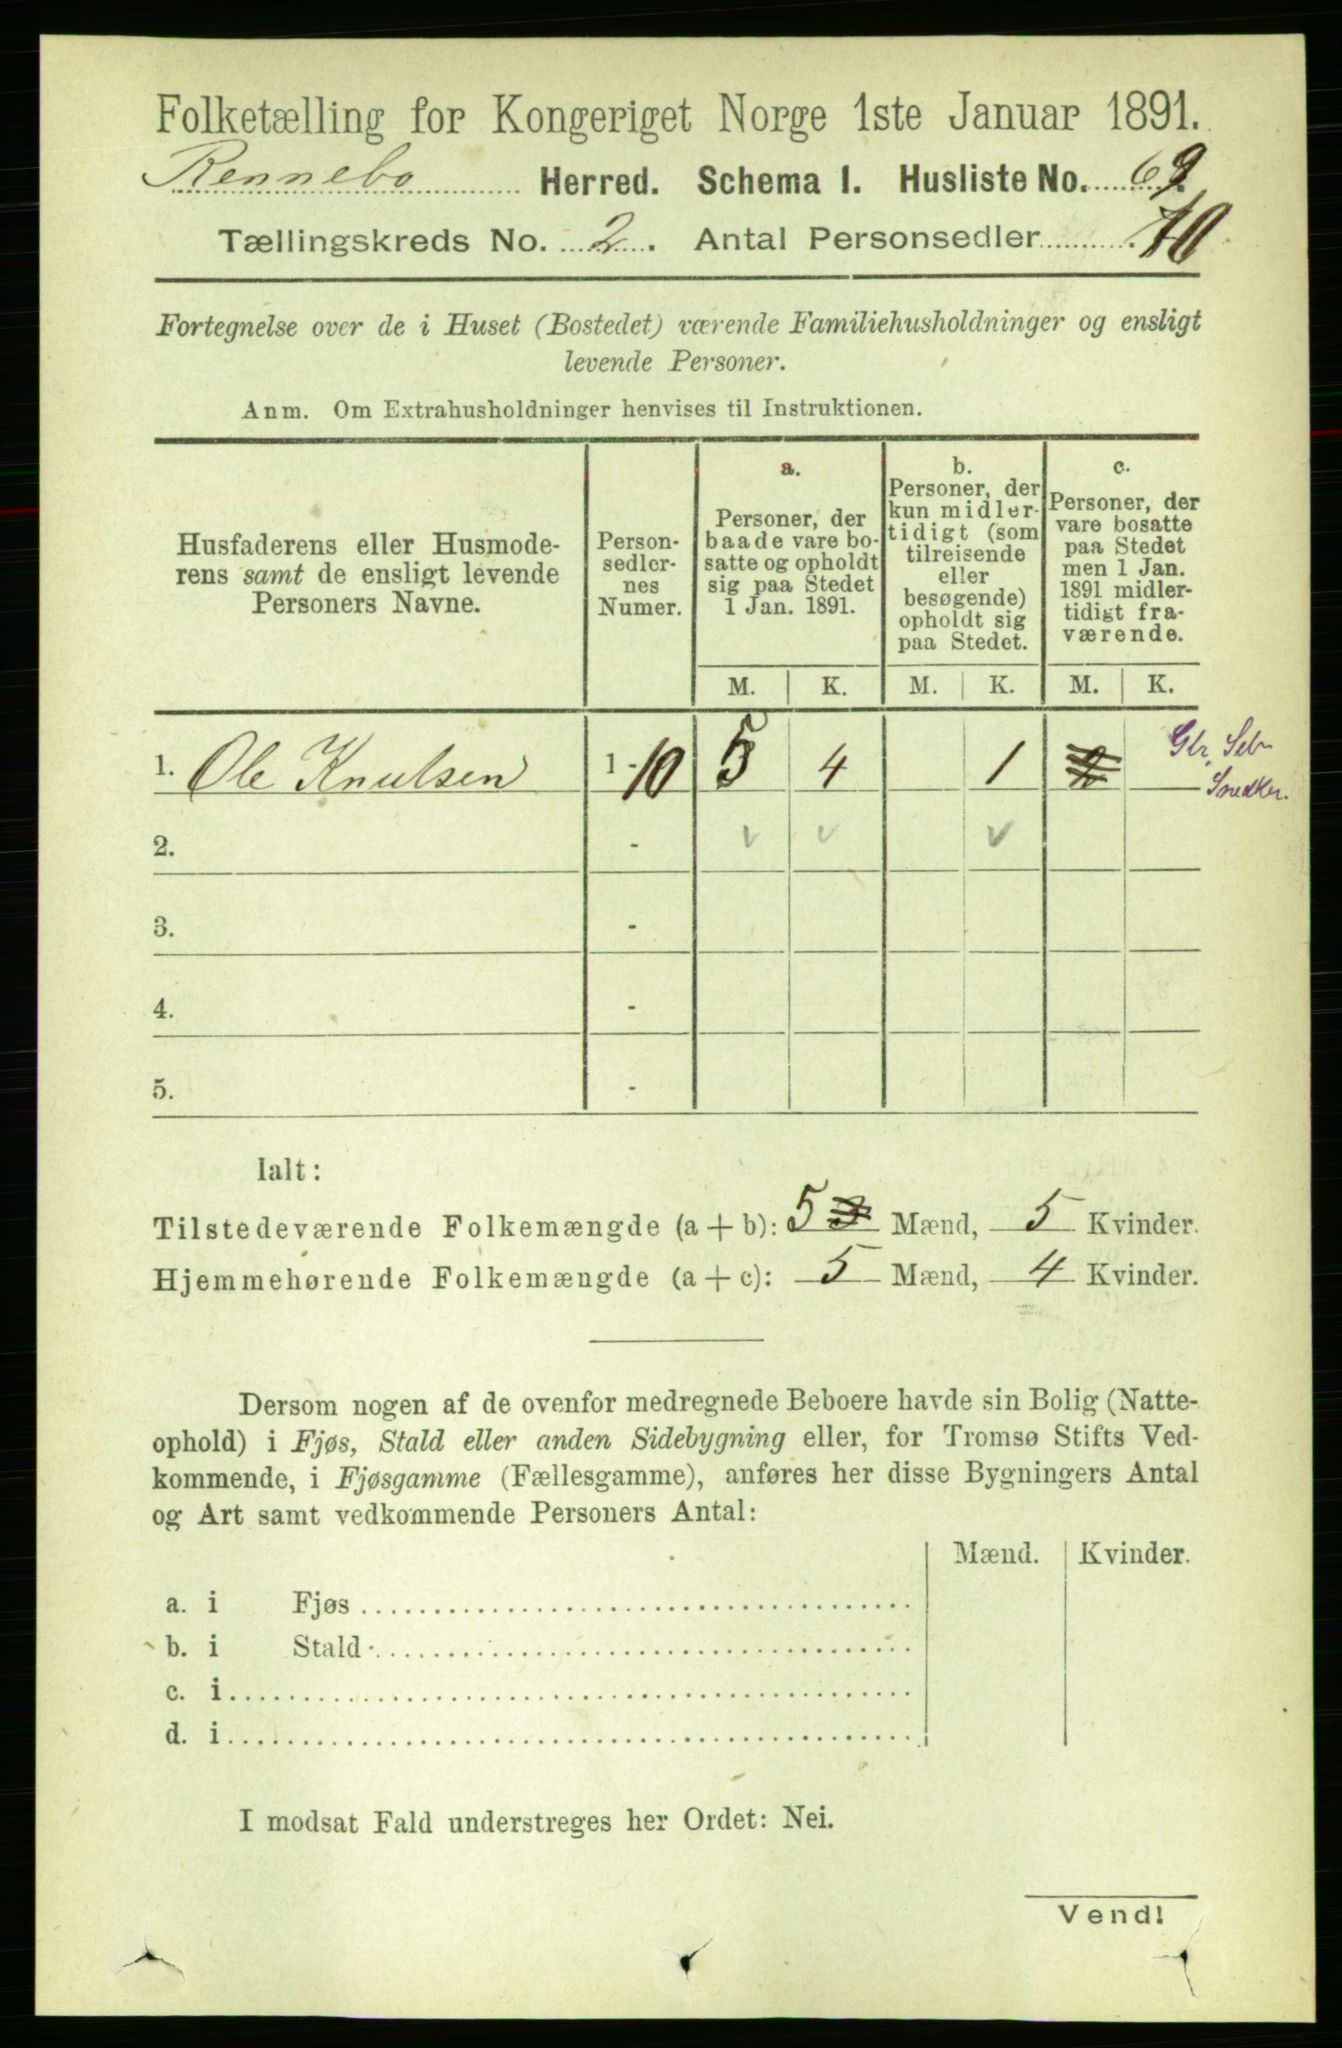 Folketælling for Kongeriget Norge 1ste Januar 1891.
Rennebo Herred. Schema I. Husliste No. 69
Tællingskreds No. 2. Antal Personsedler 10
Fortegnelse over de i Huset (Bostedet) værende Familiehusholdninger og ensligt
levende Personer.
Anm. Om Extrahusholdninger henvises til Instruktionen.
Husfaderens eller Husmode-
rens samt de ensligt levende
Personers Navne.
Person-
sedler-
nes
Numer.
a.
Personer, der
baade vare bo-
satte og opholdt
sig paa Stedet
1 Jan. 1891.
b.
Personer, der
kun midler-
tidigt (som
tilreisende
eller
besøgende)
opholdt sig
paa Stedet.
c.
Personer, der
vare bosatte
paa Stedet
men 1 Jan.
1891 midler-
tidigt fra-
værende.
M. K. M. K. M. K.
1. Ole Knutsen 1 - 10 5 4 1
Snedker.
2. -
3. -
4. -
5. -
Ialt:
Tilstedeværende Folkemængde (a + b): 5 Mænd, 5 Kvinder.
Hjemmehørende Folkemængde (a + c): 5 Mænd, 4 Kvinder.
Dersom nogen af de ovenfor medregnede Beboere havde sin Bolig (Natte-
ophold) i Fjøs, Stald eller anden Sidebygning eller, for Tromsø Stifts Ved-
kommende, i Fjøsgamme (Fællesgamme), anføres her disse Bygningers Antal
og Art samt vedkommende Personers Antal:
Mænd. Kvinder.
a. i Fjøs
b. i Stald
c. i
d. i
I modsat Fald understreges her Ordet: Nei.
Vend!